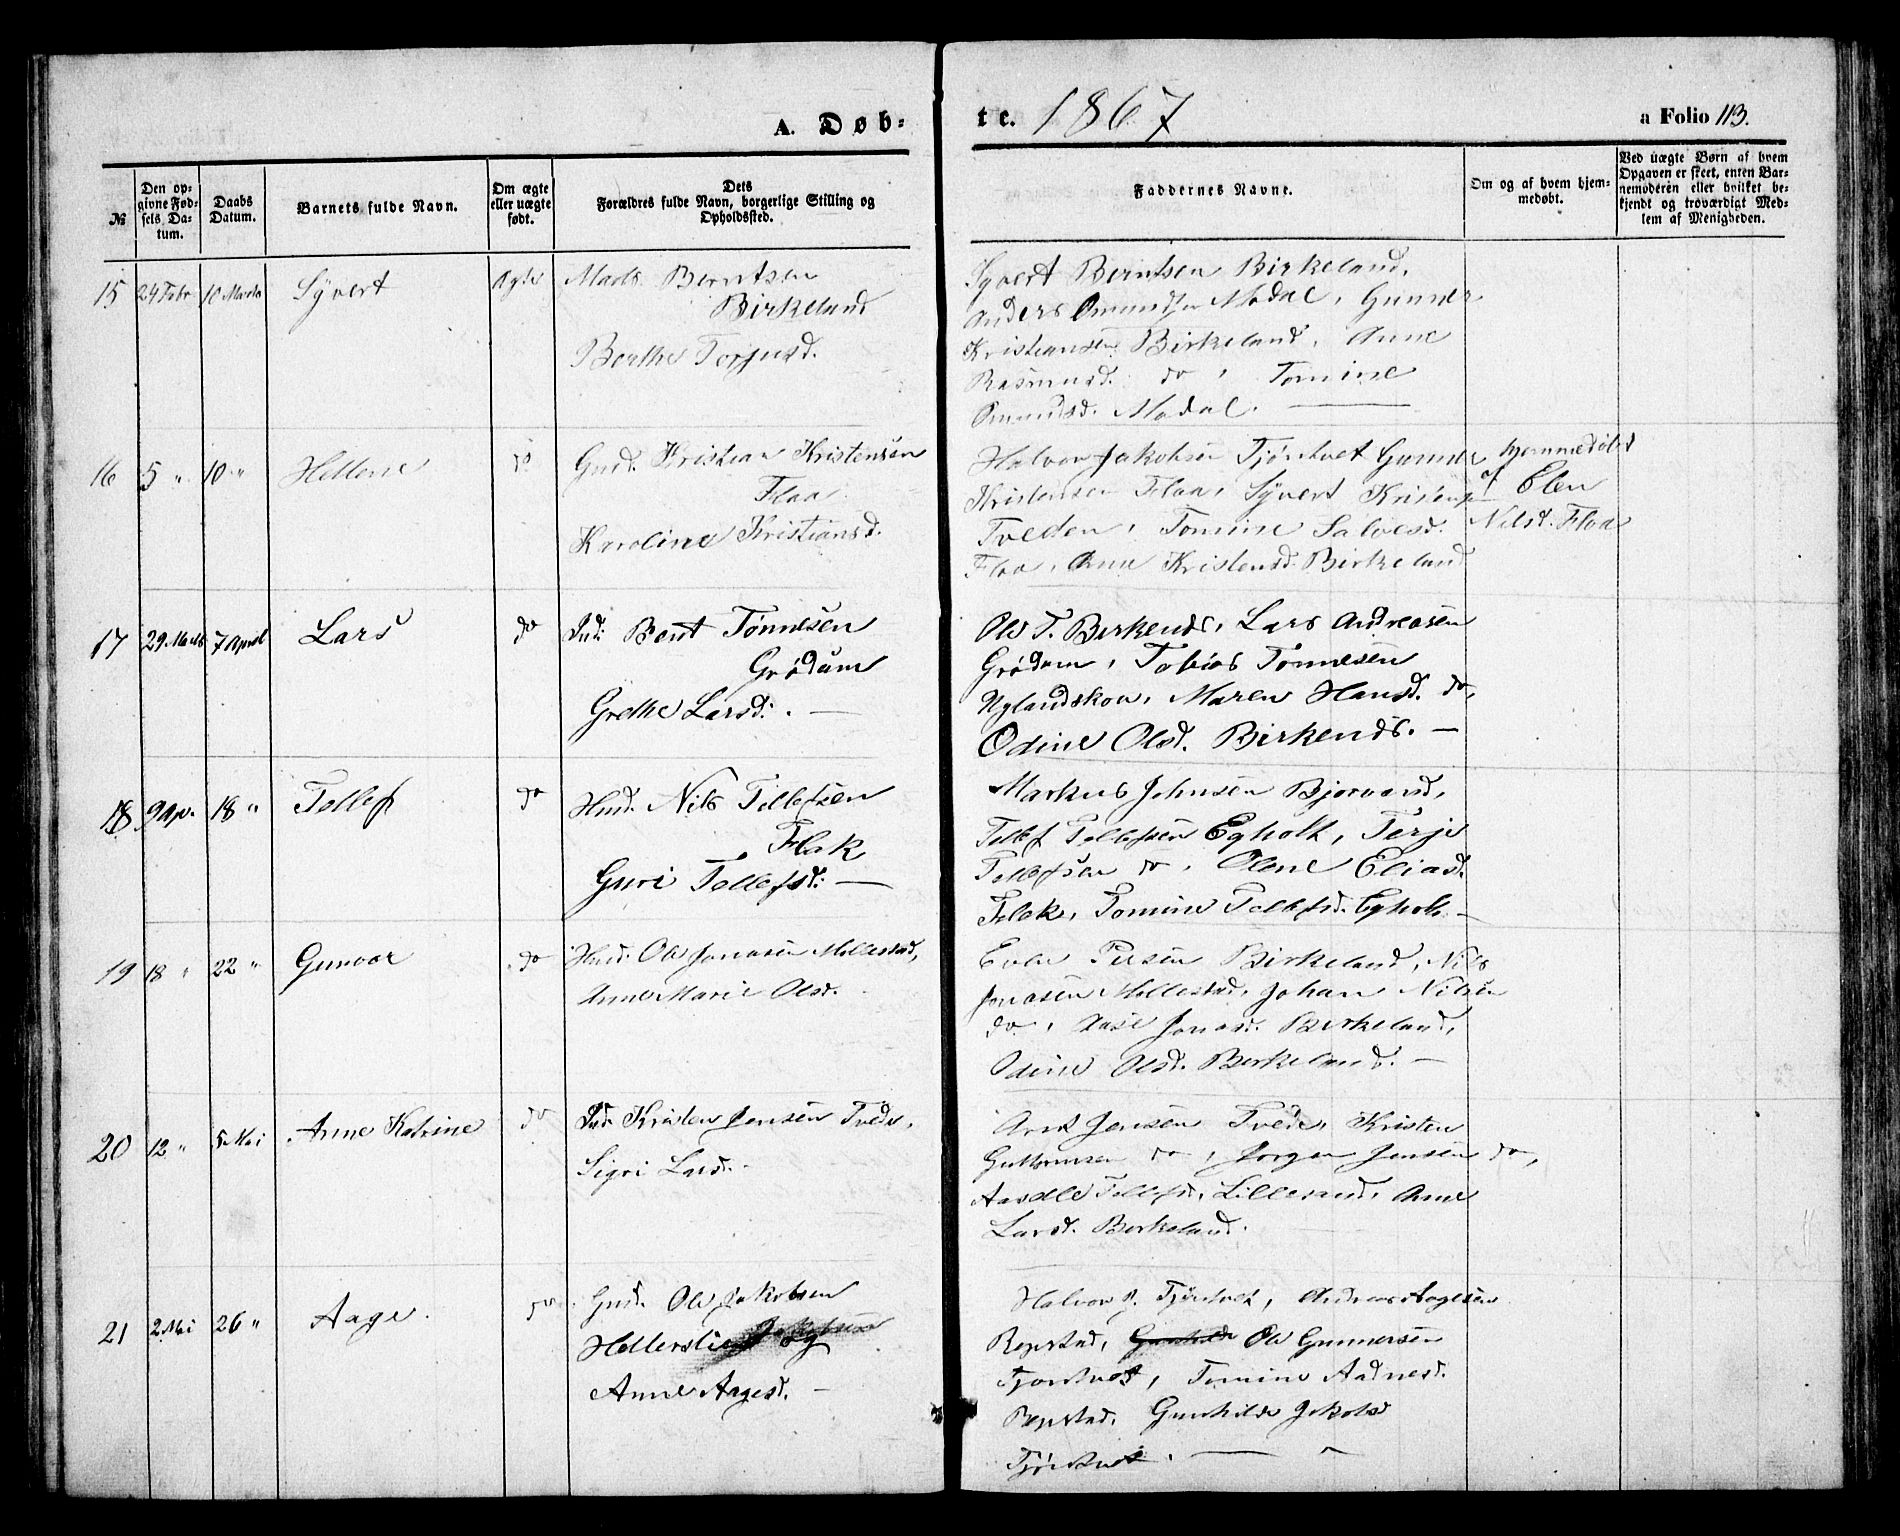 A. Døb-
te. 1867
a Folio 113.
№
Den op-
givne Fød-
sels Da-
tum.
Daabs
Datum.
Barnets fulde Navn.
Om ægte
eller uægte
født.
Dets
Forældres fulde Navn, borgerlige Stilling og
Opholdssted.
Faddernes Navne.
Om og af hvem hjem-
medøbt.
Ved uægte Børn af hvem
Opgaven er skeet, enten Bar-
nemoderen eller hvilket be-
kjendt og troværdigt Med-
lem af Menigheden.
15 24 Febr 10 Marts Syvert Ægte Mads Berntsen
Birkeland
Berthe Torjusd.
Syvert Berntsen Birkeland,
Anders Omundsen Modal, Gunder
Kristiansen Birkeland, Anne
Rasmusd. do, Tomine
Omundsd. Modal. —
16 5 " 10 " Hellene do Gmd. Kristian Kristensen
Flaa
Karoline Kristiansd.
Halvor Jakobsen Tjøntvet Gunder
Kristensen Flaa, Syvert Kristens
Tvetten, Tomine Salvesd.
Flaa, Anne Kristensd. Birkeland
hjemmedøbt
af Elen
Nilsd. Flaa
17 29 Marts 7 April Lars do Ind: Bent Tønnesen
Grødum
Grethe Larsd: . —
Ole T. Birkends, Lars Andreasen
Grødum, Tobias Tønnesen
Nylandskov, Maren Hansd. do,
Odine Olsd. Birkends. —
18 9 Ap. 18 " Tellef do Hmd. Nils Tellefsen
Flak
Guri Tellefsd: —
Markus Johnsen Bjorvand,
Tellef Tellefsen Egholt, Terje
Tellefsen do, Olene Eliasd.
Flak, Tomine Tellefsd. Egholt. —
19 18 " 22 " Gunvor do Hmd. Ole Jonasen Mollestad,
Anne Marie Olsd.
Even Persen Birkeland, Nils
Jonasen Mollestad, Johan Nilsen
do, Aase Jonasd. Birkeland,
Odine Olsd. Birkeland. —
20 12 " 5 Mai Anne Katrine do Ind. Kristen Jensen Tvede,
Sigri Larsd. -
Arnt Jensen Tvede, Kristen
Guttormsen do, Jørgen Jensen do,
Tellefsd, Lillesand, Anne
Larsd. Birkeland.
21 2 Mai 26 " Aage do Gmd. Ole Jakobsen
Hellerslien og
Anne Aagesd. —
Halvor J. Tjøntvet, Andreas Aagesen
Repstad, Gunhilde Ole Gunnersen
Tjøntvet, Tomine Aadnesd.
Repstad, Gunhilde Jakobsd
Tjøntvet. —